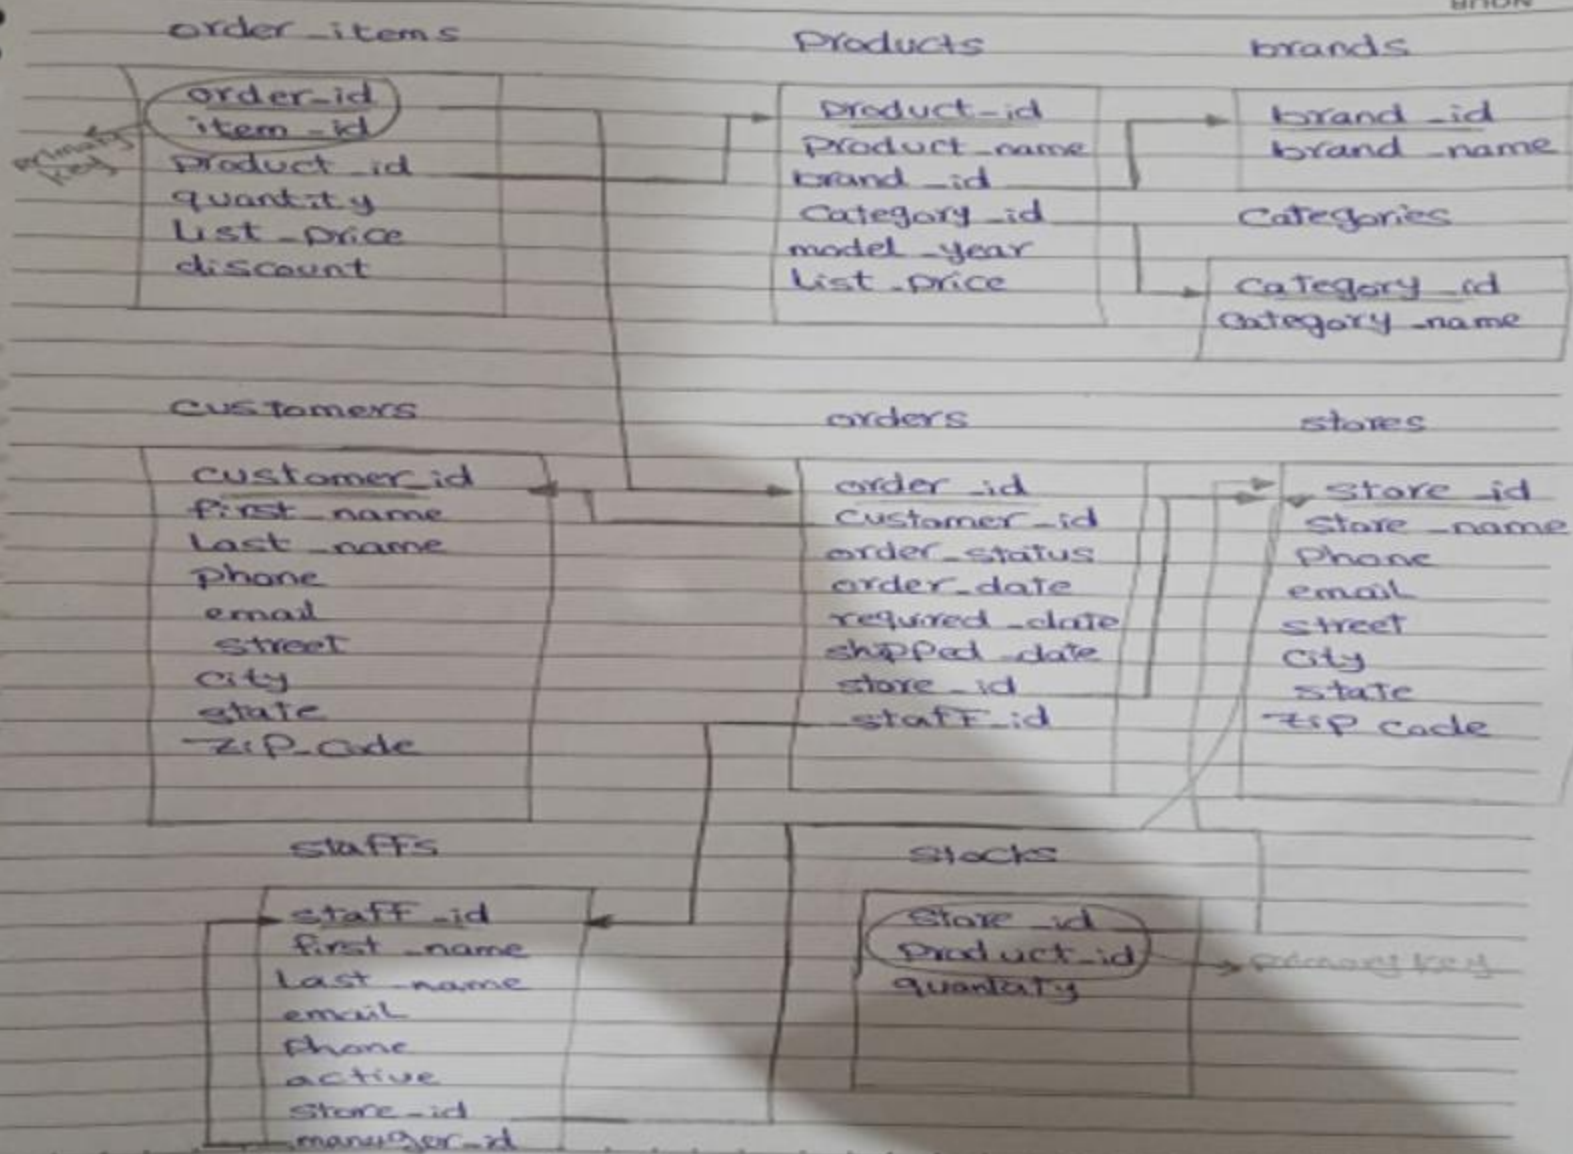 NOUR
order_items
order_id
item_id
primary
key
product_id
quantity
List_price
discount
Products
Product_id
Product_name
brand_id
Category_id
model_year
List_price
brands
brand_id
brand_name
Categories
Category_id
Category_name
customers
customer_id
first_name
Last_name
phone
email
street
city
state
zip_code
orders
order_id
customer_id
order_status
order_date
required_date
shipped_date
store_id
staff_id
stores
store_id
store_name
Phone
email
street
city
state
zip code
staffs
staff_id
first_name
Last_name
email
phone
active
store_id
manager_id
stocks
store_id
product_id
primary key
quantaty